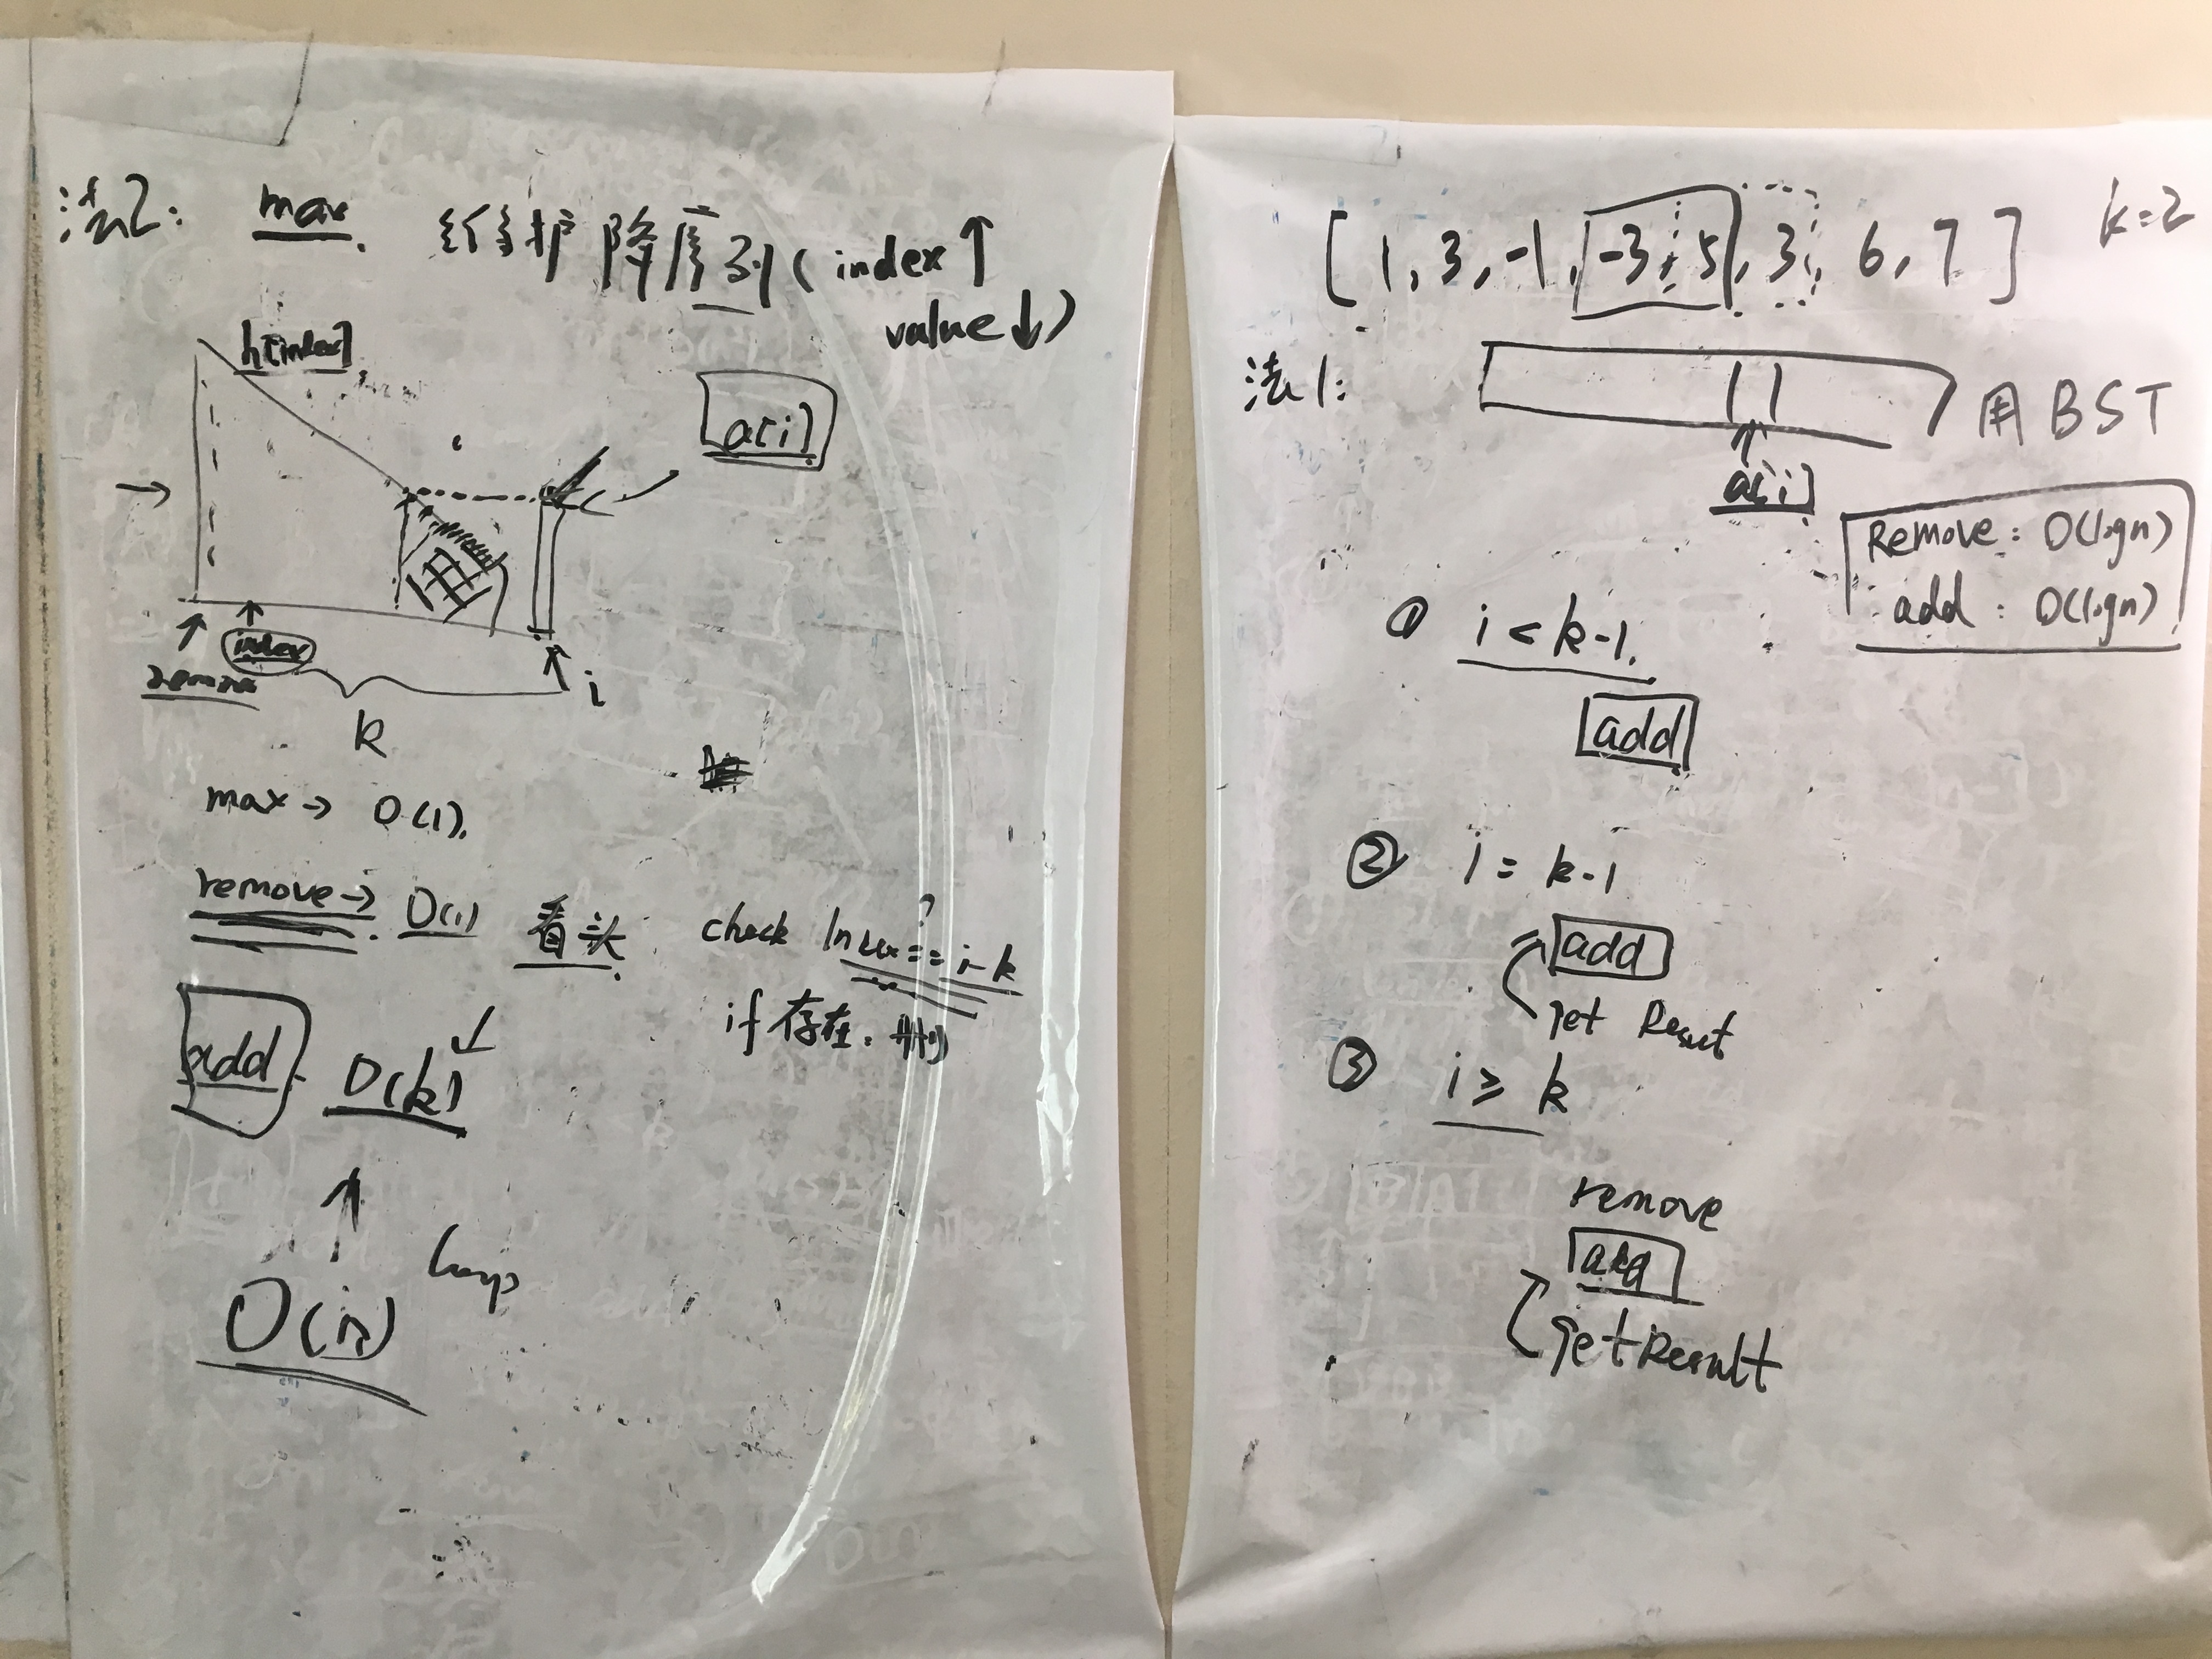 法2: max. 维护降序列 ( index ↑
value ↓ )
h[index]
a[i]
index
remove
i
k
max → O(1).
remove → O(1) 看头 check Index == i-k
?
if 存在.
add O(k)
O(n) loop
[ 1, 3, -1, -3, 5, 3, 6, 7 ] k=2
法1: 用 BST
a[i]
Remove : O(logn)
add : O(logn)
① i < k-1.
add
② i = k-1
add
get Result
③ i ≥ k
remove
add
getResult